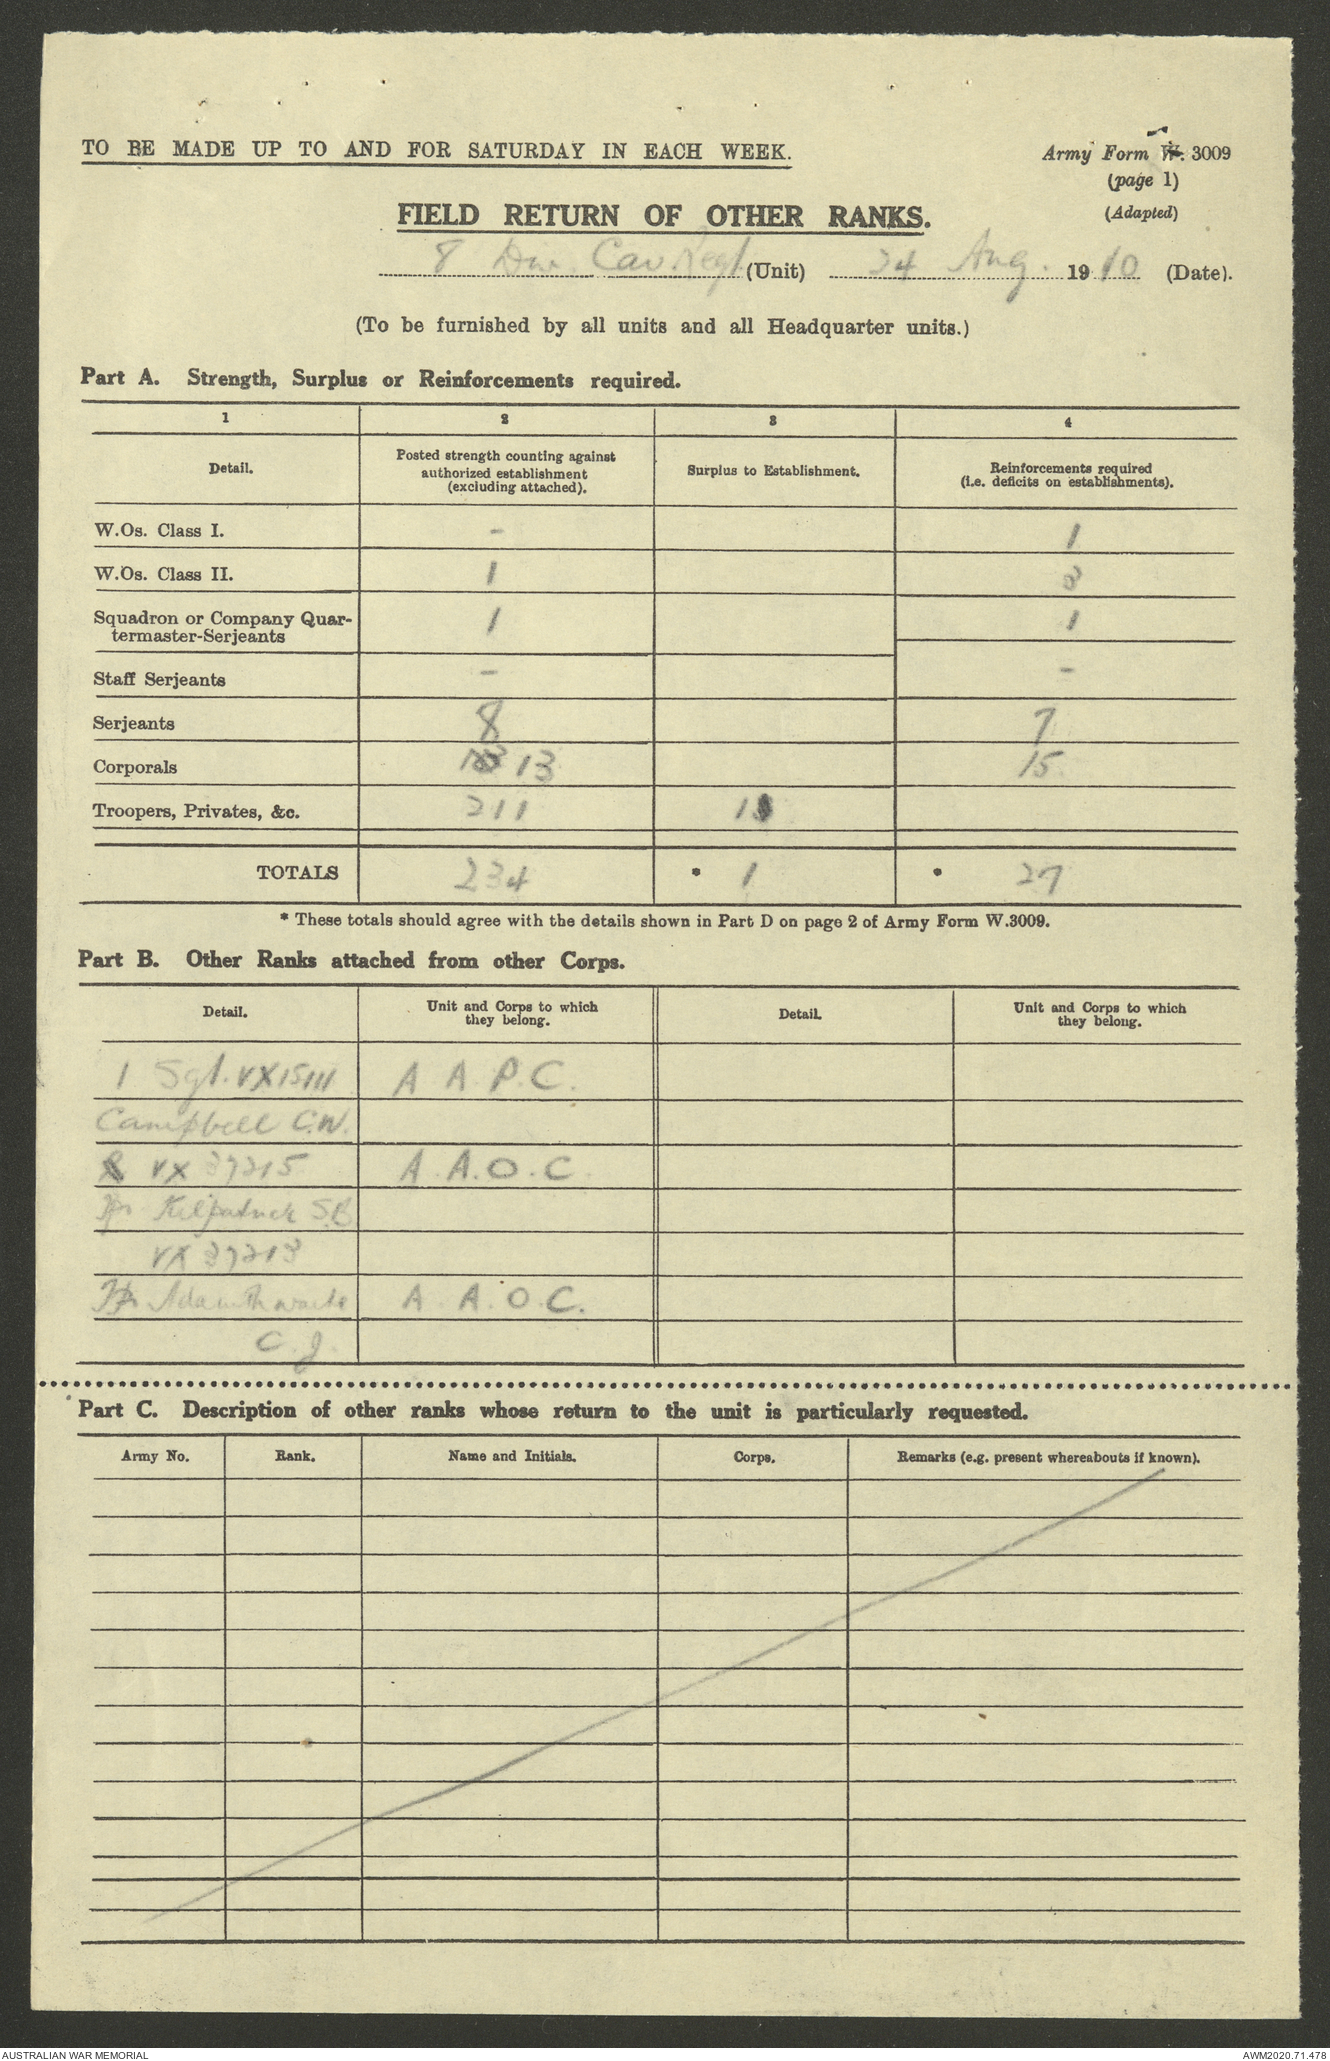 TO BE MADE UP TO AND FOR SATURDAY IN EACH WEEK.
Army Form W. 3009
(page 1)
(Adapted)
FIELD RETURN OF OTHER RANKS.
8 Div. Cav. Regt. (Unit) 24 Aug. 19 40 (Date).
(To be furnished by all units and all Headquarter units.)
Part A. Strength, Surplus or Reinforcements required.
1 2 3 4
Detail. Posted strength counting against authorized establishment (excluding attached). Surplus to Establishment. Reinforcements required (i.e. deficits on establishments).
W.Os. Class I. - 1
W.Os. Class II. 1 3
Squadron or Company Quar-
termaster-Serjeants 1 1
Staff Serjeants - -
Serjeants 8 7
Corporals 13 15
Troopers, Privates, &c. 211 1
TOTALS 234 * 1 * 27
* These totals should agree with the details shown in Part D on page 2 of Army Form W.3009.
Part B. Other Ranks attached from other Corps.
Detail. Unit and Corps to which they belong. Detail. Unit and Corps to which they belong.
1 Sgt. VX15111 A. A. P. C.
Campbell C.W.
VX 37215 A. A. O. C.
Tpr Kilpatrick S.B
VX 37213
Tpr Adamthwaite A. A. O. C.
C. J.
Part C. Description of other ranks whose return to the unit is particularly requested.
Army No. Rank. Name and Initials. Corps. Remarks (e.g. present whereabouts if known).
AUSTRALIAN WAR MEMORIAL
AWM2020.71.478